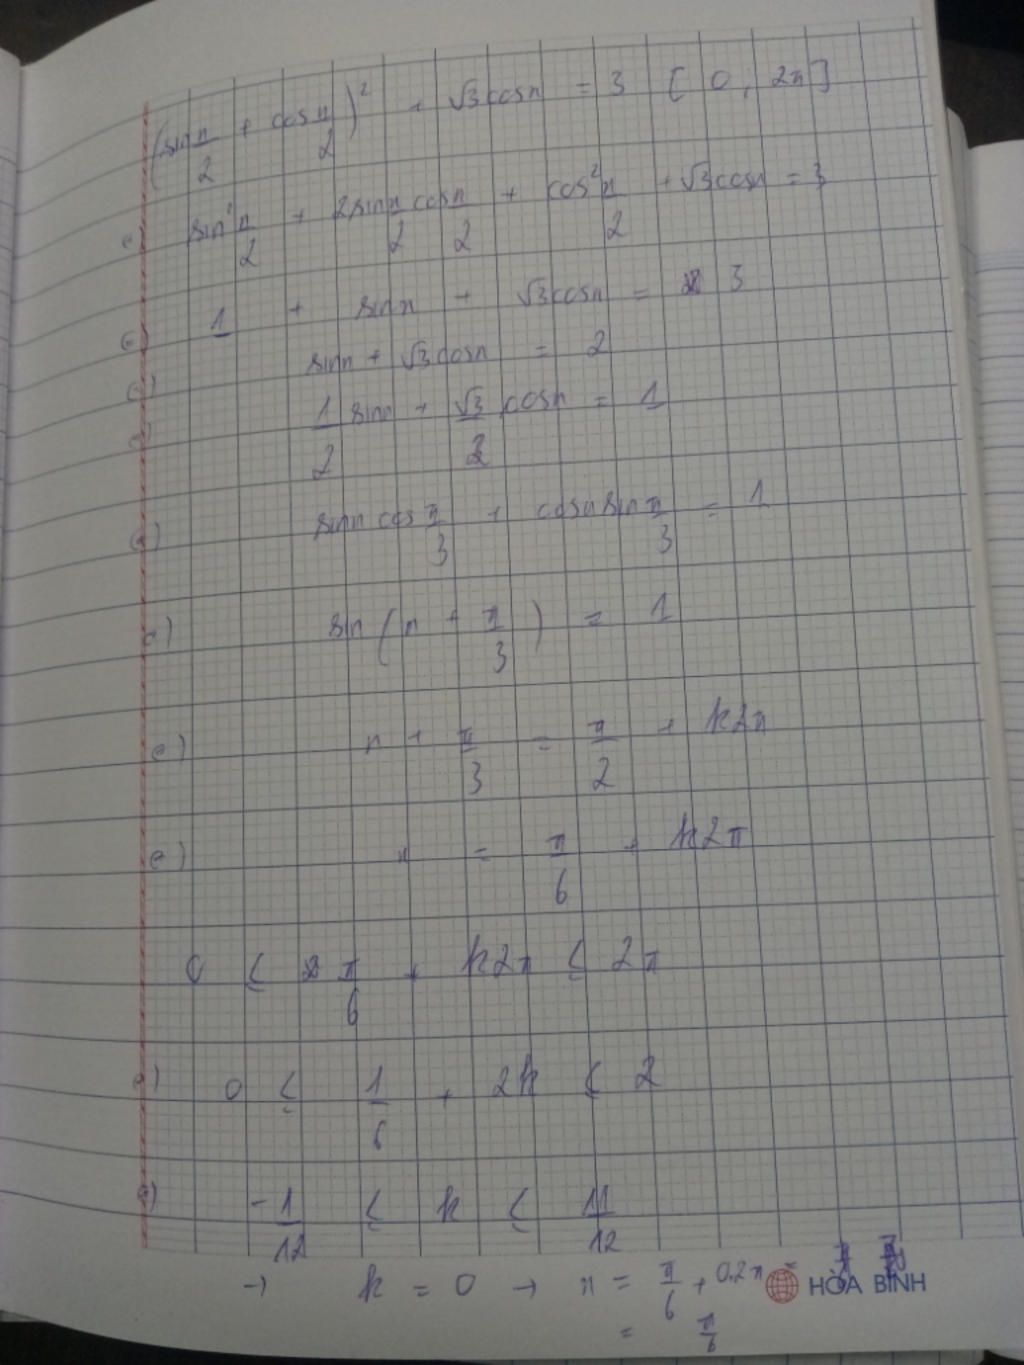 (sin x/2 + cos x/2)² + √3 cosx = 3 [0; 2π]
⇔) sin² x/2 + 2sin x/2 cos x/2 + cos² x/2 + √3cosx = 3
⇔) 1 + sinx + √3cosx = 3
⇔) sinx + √3cosx = 2
⇔) 1/2 sinx + √3/2 cosx = 1
⇔) sinx cos π/3 + cosx sin π/3 = 1
⇔) sin (x + π/3) = 1
⇔) x + π/3 = π/2 + k2π
⇔) x = π/6 + k2π
0 ≤ π/6 + k2π ≤ 2π
⇔) 0 ≤ 1/6 + 2k ≤ 2
⇔) -1/12 ≤ k ≤ 11/12
→ k = 0 → x = π/6 + 0.2π =
= π/6
HÒA BÌNH